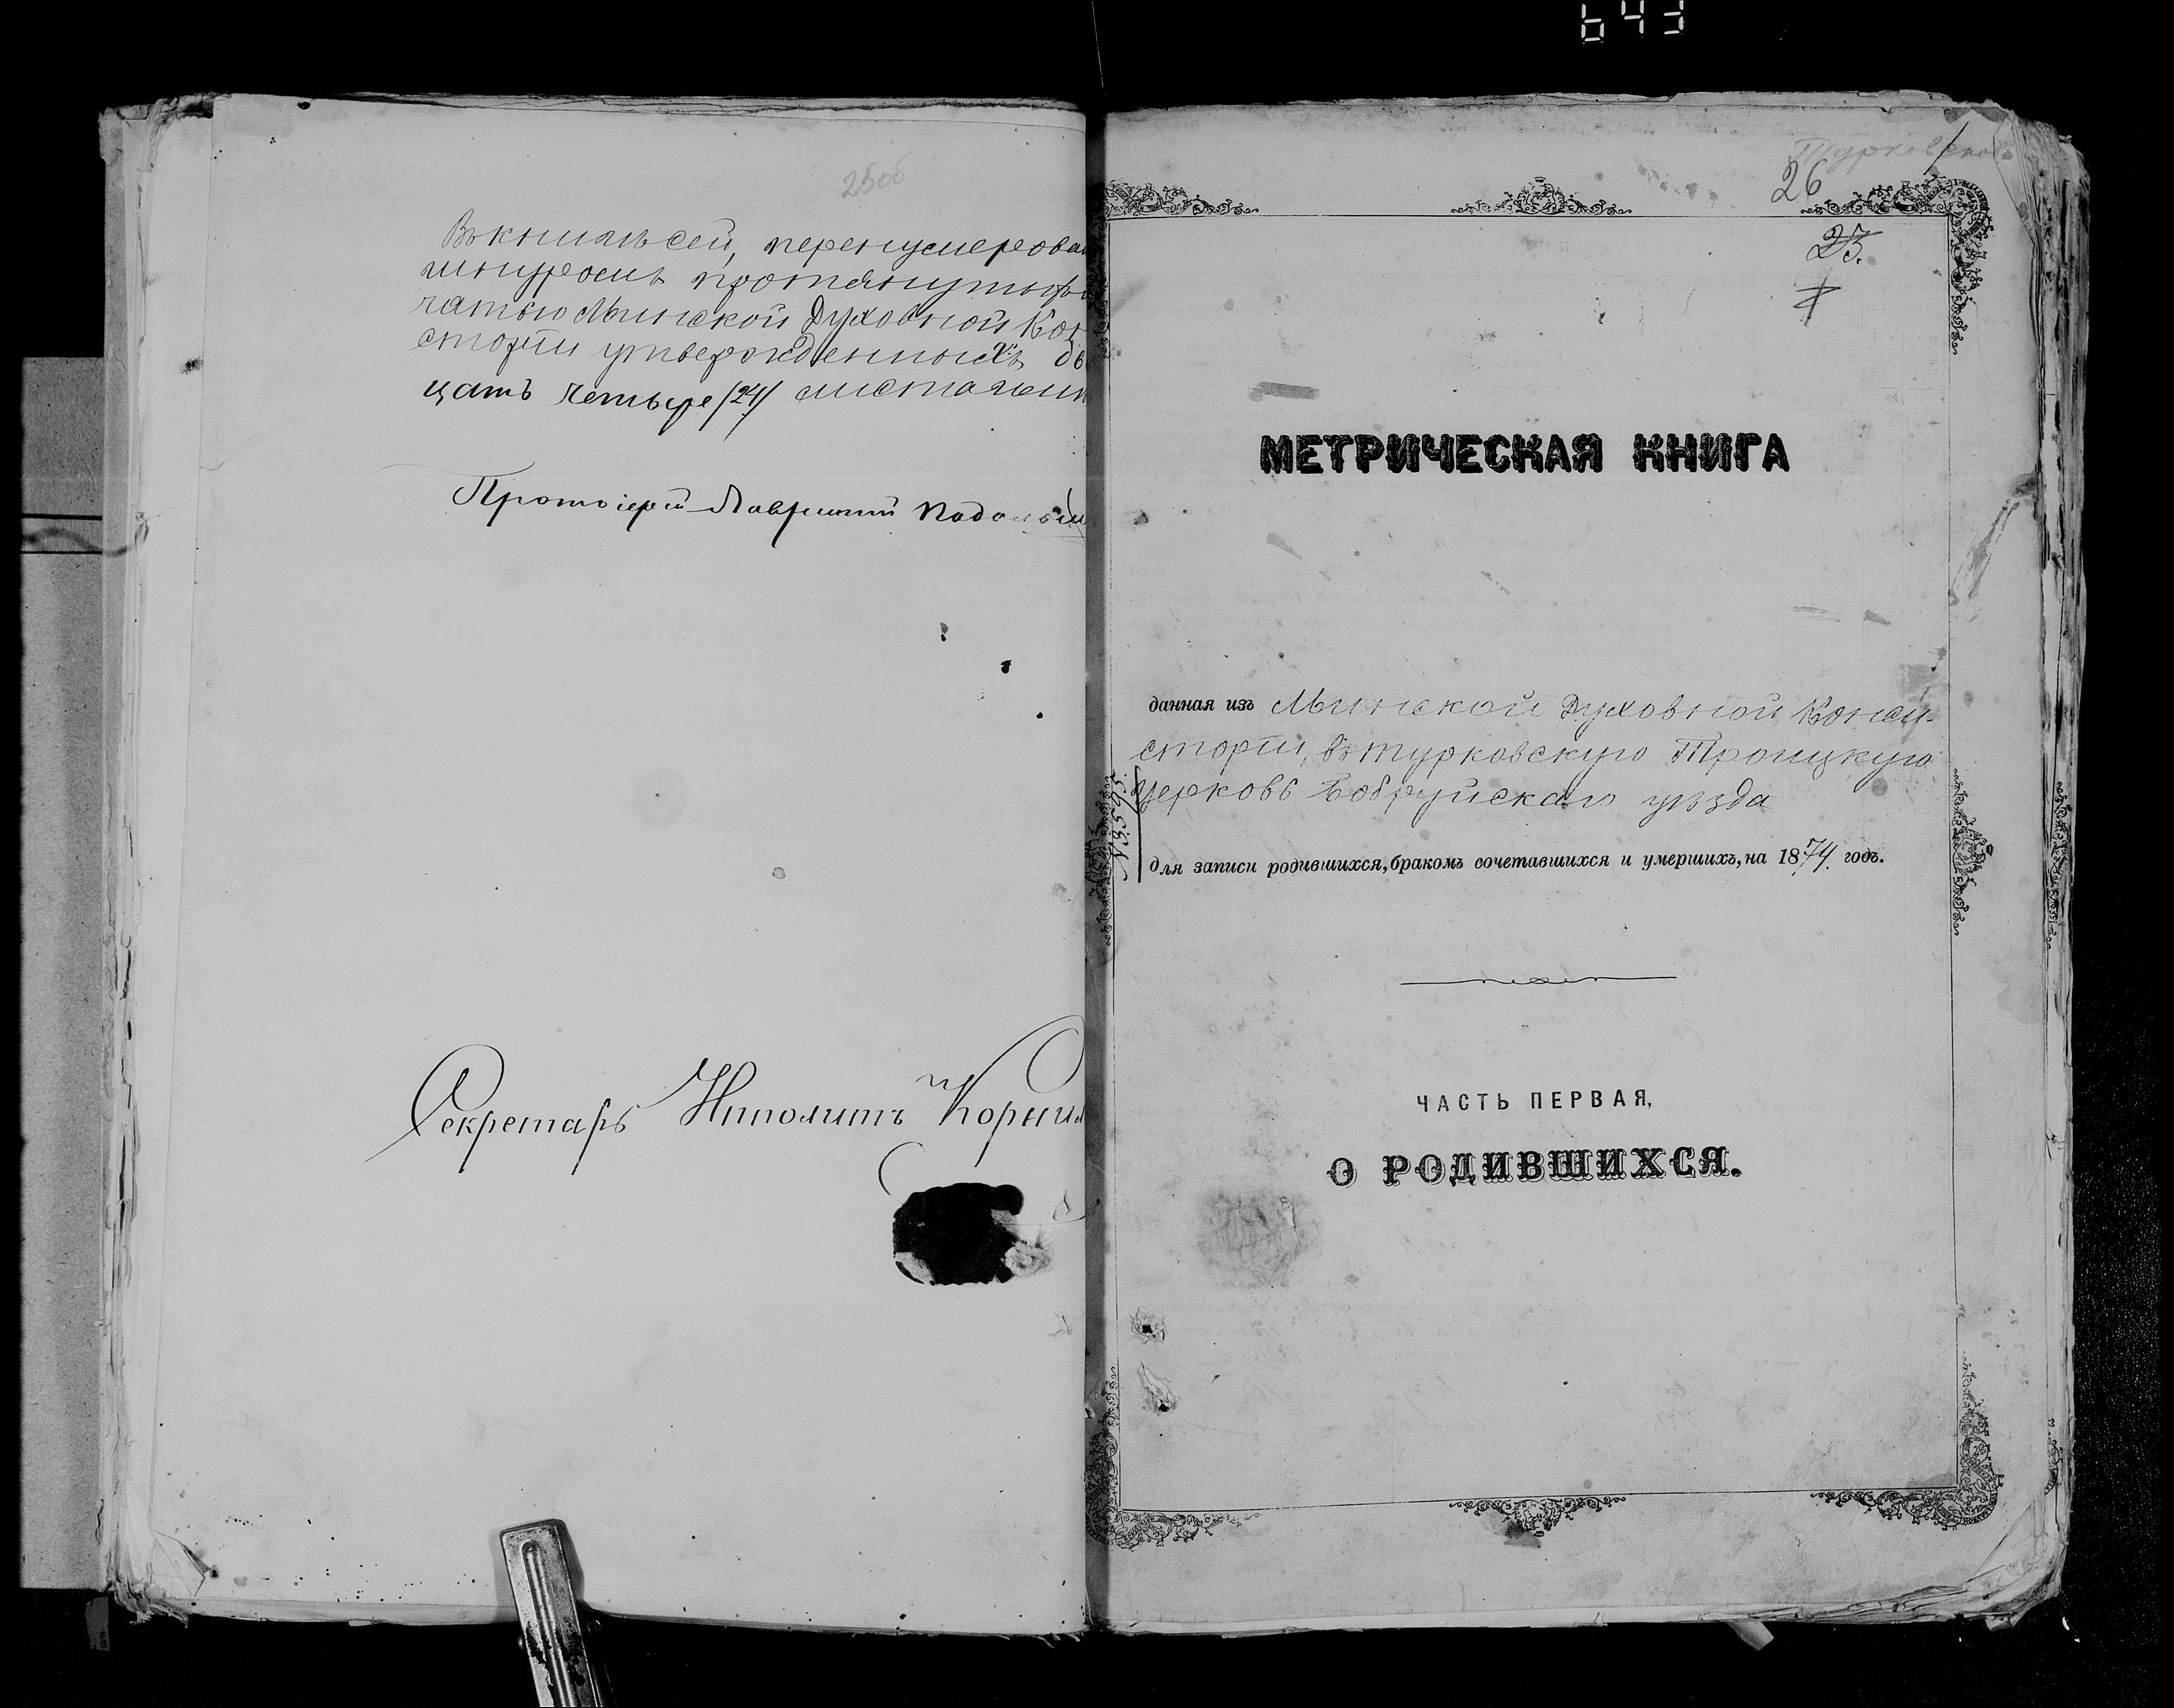 643
25об
Въ книгѣ сей, перенумерован
шнуромъ протянутых
чатью Минской Духовной Кон
сторіи утвержденныхъ дв
цать четыре /24/ листа
Протоіерей Лаврентій
Секретарь Ипполитъ Корнил
Турковская
26
1
25.
МЕТРИЧЕСКАЯ КНИГА
данная изъ Минской Духовной Конси-
сторіи, въ Турковскую Троицкую
Церковь Бобруйскаго уѣзда
для записи родившихся, бракомъ сочетавшихся и умершихъ, на 1874. годъ.
ЧАСТЬ ПЕРВАЯ,
О РОДИВШИХСЯ.